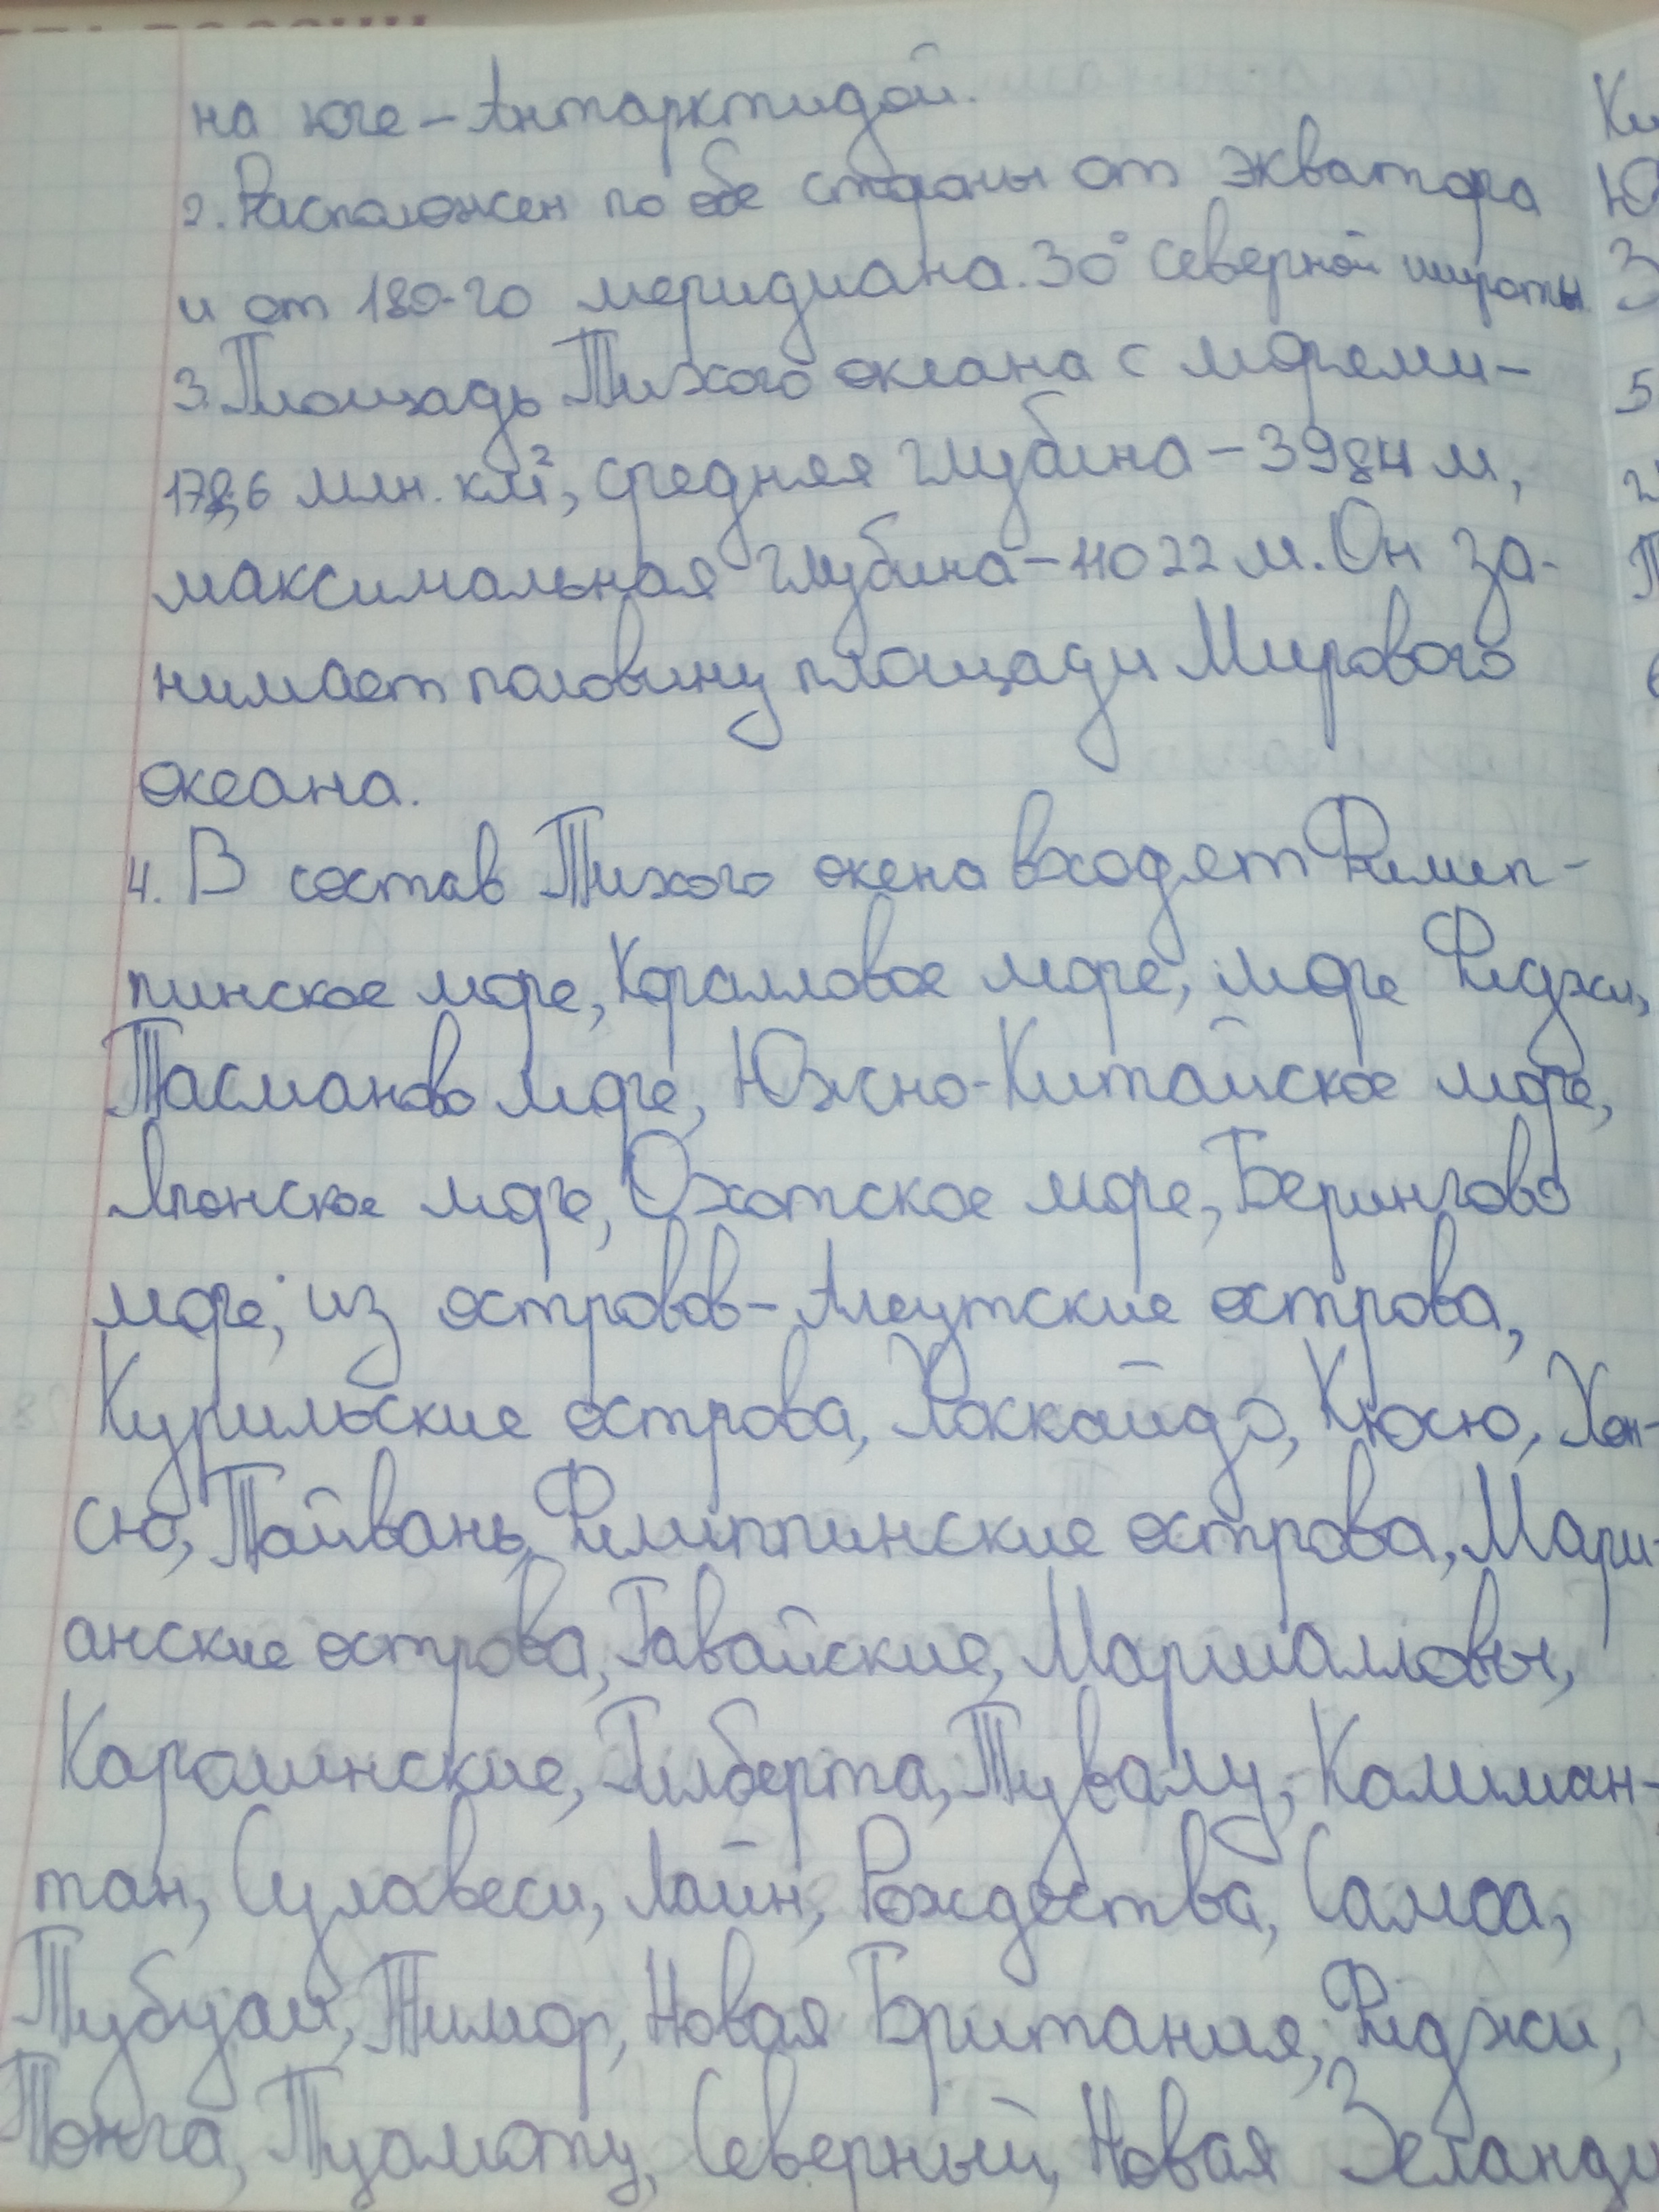 на юге – Антарктидой.
2. Расположен по обе стороны от экватора
и от 180-го меридиана. 30° северной широты.
3. Площадь Тихого океана с морями –
178,6 млн. км², средняя глубина – 3984 м,
максимальная глубина – 11022 м. Он за-
нимает половину площади Мирового
океана.
4. В состав Тихого окена входят Филип-
пинское море, Коралловое море, море Фиджи,
Тасманово море, Южно-Китайское море,
Японское море, Охотское море, Берингово
море; из островов – Алеутские острова,
Курильские острова, Хоккайдо, Кюсю, Хон-
сю, Тайвань, Филиппинские острова, Мари-
анские острова, Гавайские, Маршалловы,
Каролинские, Гилберта, Тувалу, Калиман-
тан, Сулавеси, Лайн, Рождества, Самоа,
Тубуаи, Тимор, Новая Британия, Фиджи,
Тонга, Туамоту, Северный, Новая Зеланди